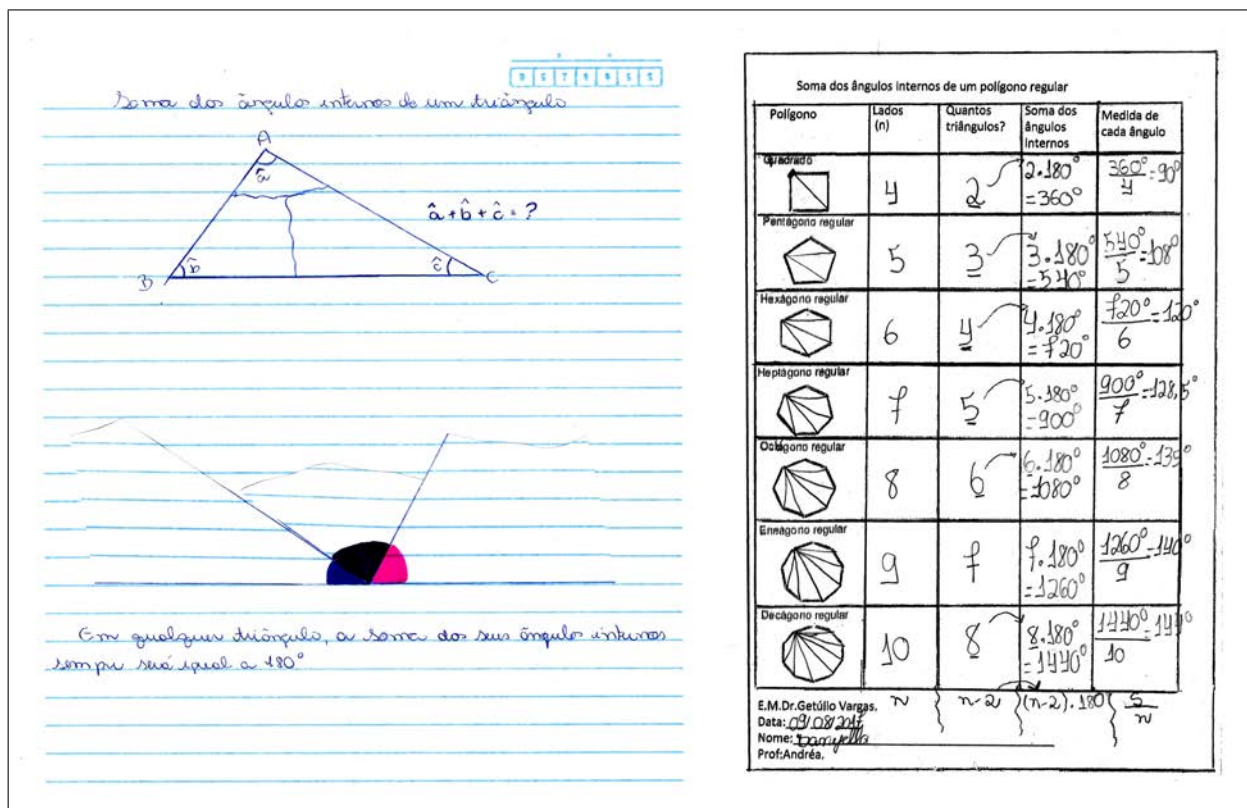 Soma dos ângulos internos de um triângulo
A
â
â + b̂ + ĉ = ?
B
b̂
ĉ
C
Em qualquer triângulo, a soma dos seus ângulos internos
sempre será igual a 180°
Soma dos ângulos internos de um polígono regular
Polígono
Lados (n)
Quantos triângulos?
Soma dos ângulos Internos
Medida de cada ângulo
Quadrado
4
2
2.180° = 360°
360°/4 = 90°
Pentágono regular
5
3
3.180° = 540°
540°/5 = 108°
Hexágono regular
6
4
4.180° = 720°
720°/6 = 120°
Heptágono regular
7
5
5.180° = 900°
900°/7 = 128,5°
Octógono regular
8
6
6.180° = 1080°
1080°/8 = 135°
Eneágono regular
9
7
7.180° = 1260°
1260°/9 = 140°
Decágono regular
10
8
8.180° = 1440°
1440°/10 = 144°
n
n-2
(n-2).180
S/n
E.M.Dr.Getúlio Vargas.
Data: 09/08/2017
Nome:
Prof:Andréa.